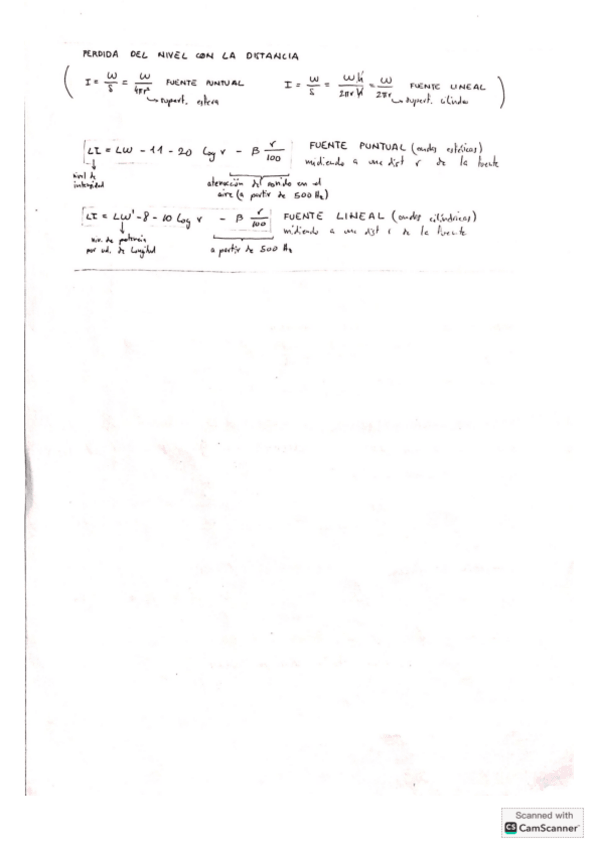 PERDIDA DEL NIVEL CON LA DISTANCIA
( I = W/S = W/4πr² FUENTE PUNTUAL I = W/S = W'h/2πrh = W'/2πr FUENTE LINEAL )
superf. esfera superf. cilindro
LI = LW - 11 - 20 log r - β r/100 FUENTE PUNTUAL (ondas esféricas)
midiendo a una dist r de la fuente
nivel de intensidad
atenuación del sonido en el
aire (a partir de 500 Hz)
LI = LW' - 8 - 10 log r - β r/100 FUENTE LINEAL (ondas cilíndricas)
midiendo a una dist r de la fuente
niv. de potencia a partir de 500 Hz
por ud. de longitud
Scanned with
CS CamScanner